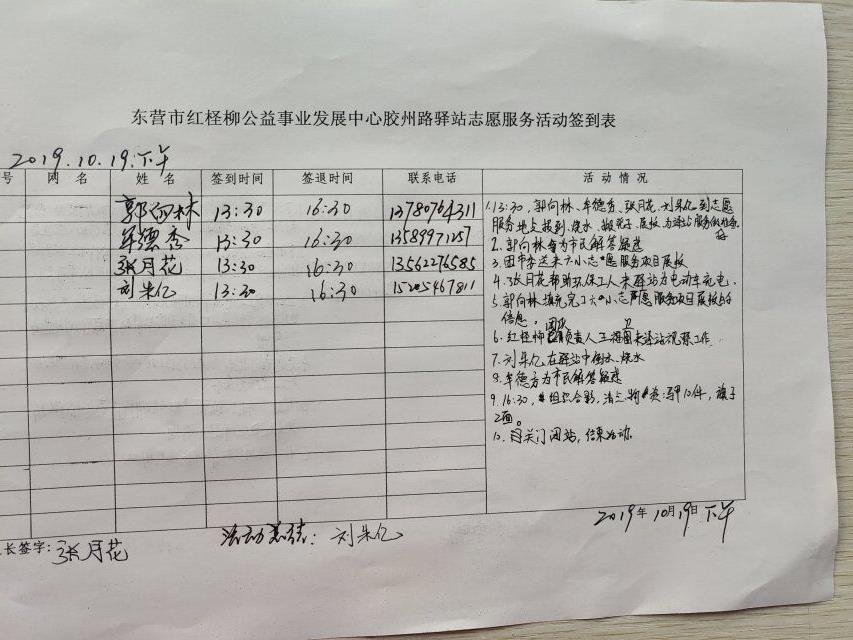 东营市红柽柳公益事业发展中心胶州路驿站志愿服务活动签到表
2019.10.19.下午
号 网名 姓名 签到时间 签退时间 联系电话 活动情况
郭向林 13:30 16:30 13780764311
牟德秀 13:30 16:30 13589971257
张月花 13:30 16:30 13562276585
刘朱亿 13:30 16:30 15205467811
1.13:30,郭向林、牟德秀、张月花、刘朱亿到志愿
服务地点报到、烧水、搬凳子、展板、为驿站服务做准备
2.郭向林为市民解答疑惑
3.团市委送来六小志愿服务项目展板
4.张月花帮助环保工人来驿站为电动车充电.
5.郭向林填充完了六小志愿服务项目展板的
信息。
6.红柽柳团队负责人王 来驿站视察工作
7.刘朱亿在驿站中倒水、烧水
8.牟德秀为市民解答疑惑
9.16:30,组织合影,清点物类:马甲10件,旗子
2面。
10.关门闭站,结束活动.
2019年10月19日下午
长签字:张月花 活动总结:刘朱亿